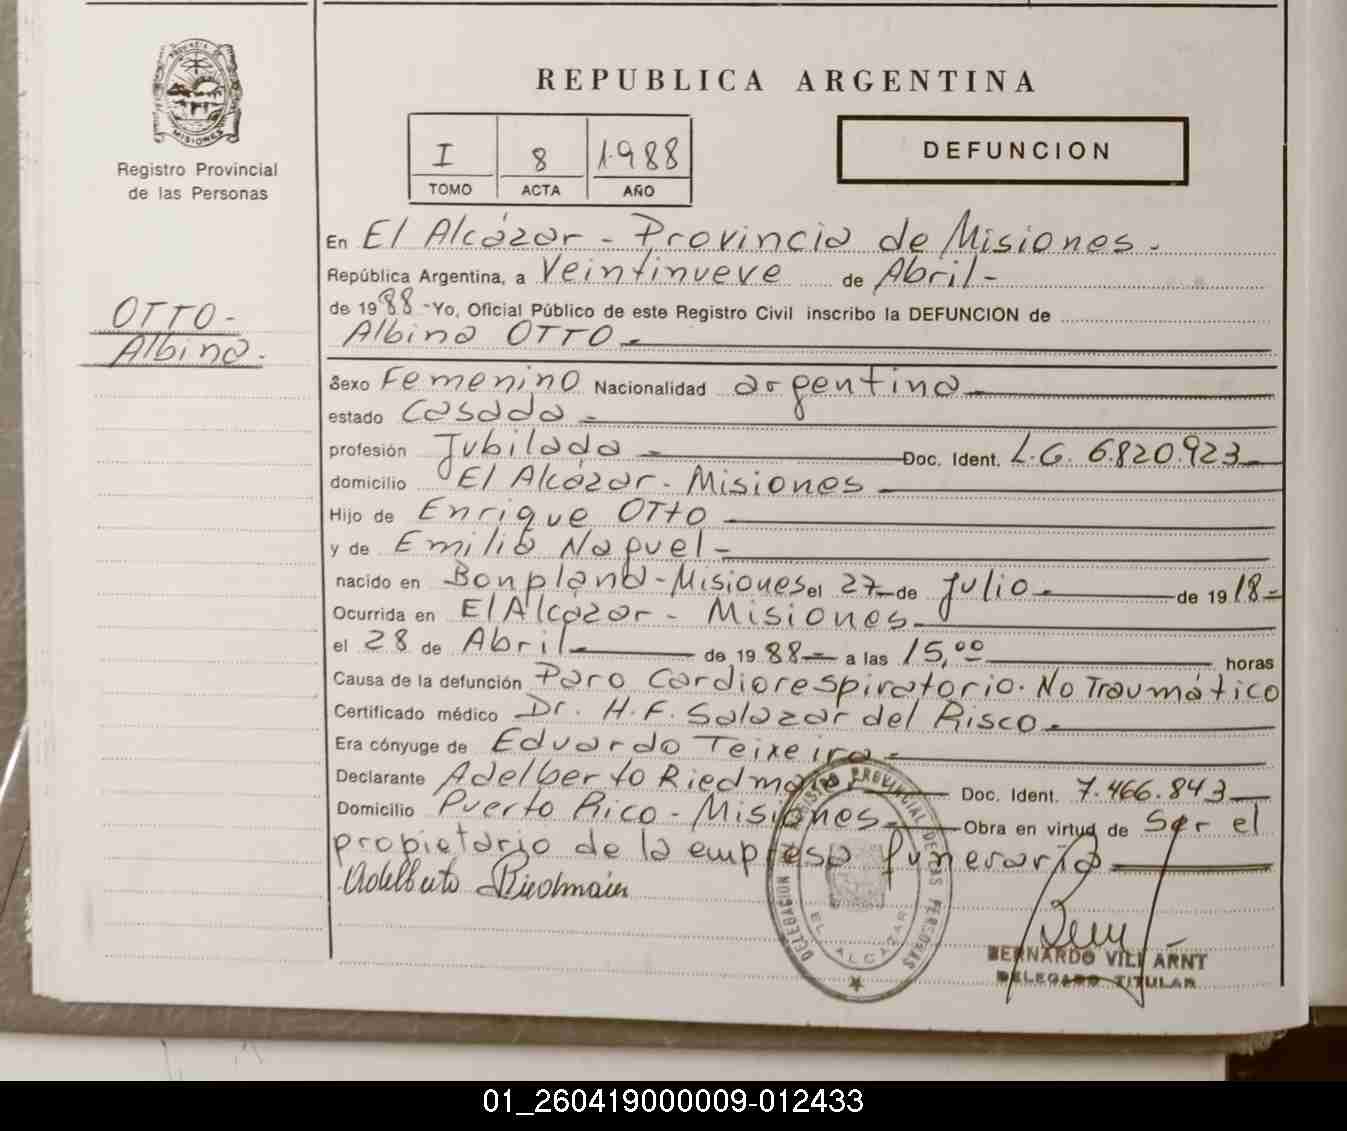 PROVINCIA DE
MISIONES
Registro Provincial
de las Personas
REPUBLICA ARGENTINA
I 8 1.988
TOMO ACTA AÑO
DEFUNCION
En El Alcázar - Provincia de Misiones -
República Argentina, a Veintinueve de Abril -
de 1988 - Yo, Oficial Público de este Registro Civil inscribo la DEFUNCION de
OTTO -
Albina.
Albina OTTO -
Sexo Femenino Nacionalidad argentina
estado Casada -
profesión Jubilada Doc. Ident. L.C. 6.820.923
domicilio El Alcázar - Misiones
Hijo de Enrique OTTO
y de Emilia Naquel -
nacido en Bonpland - Misiones el 27 de Julio de 1918 -
Ocurrida en El Alcázar - Misiones
el 28 de Abril de 1988 a las 15,00 horas
Causa de la defunción Paro Cardiorespiratorio. No Traumático
Certificado médico Dr. H.F. Salazar del Risco
Era cónyuge de Eduardo Teixeira -
Declarante Adelberto Riedmaier Doc. Ident. 7.466.843
Domicilio Puerto Rico - Misiones Obra en virtud de Ser el
propietario de la empresa funeraria
Adelberto Riedmaier
DELEGACION REGISTRO PROVINCIAL DE LAS PERSONAS
EL ALCAZAR
BERNARDO VILI ARNT
DELEGADO TITULAR
01_260419000009-012433